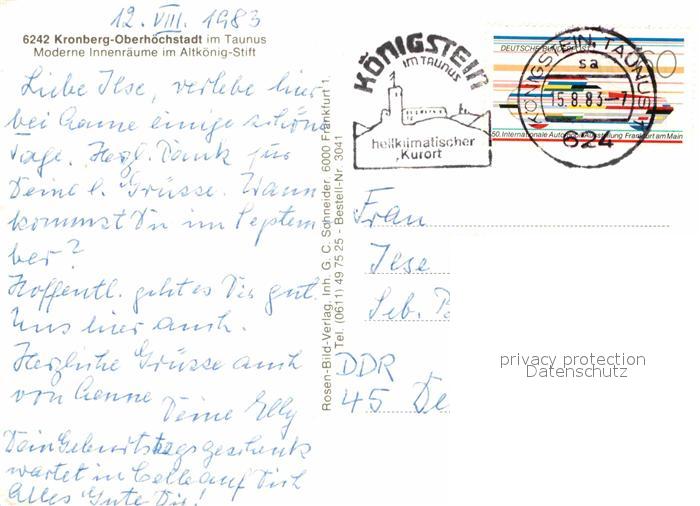 12. VIII. 1983
6242 Kronberg-Oberhöchstadt im Taunus
Moderne Innenräume im Altkönig-Stift
Liebe Ilse, verlebe hier
bei Hanne einige schöne
Tage. Herzl. Dank für
Deine l. Grüsse. Wann
kommst Du im Septem
ber?
Hoffentl. geht es Dir gut.
Uns hier auch.
Herzliche Grüsse auch
von Hanne
Deine Elly
Dein Geburtstagsgeschenk
wartet in Celle auf Dich
Alles Gute Dir!
Rosen-Bild-Verlag, Inh. G. C. Schneider, 6000 Frankfurt 1,
Tel. (0611) 49 75 25 - Bestell-Nr. 3041
KÖNIGSTEIN
IM TAUNUS
heilklimatischer
Kurort
DEUTSCHE BUNDESPOST
60
50. Internationale Automobil-Ausstellung Frankfurt am Main
KÖNIGSTEIN, TAUNUS
sa
15.8.83-7
624
Frau
Ilse
Seb.
DDR
45 De
privacy protection
Datenschutz